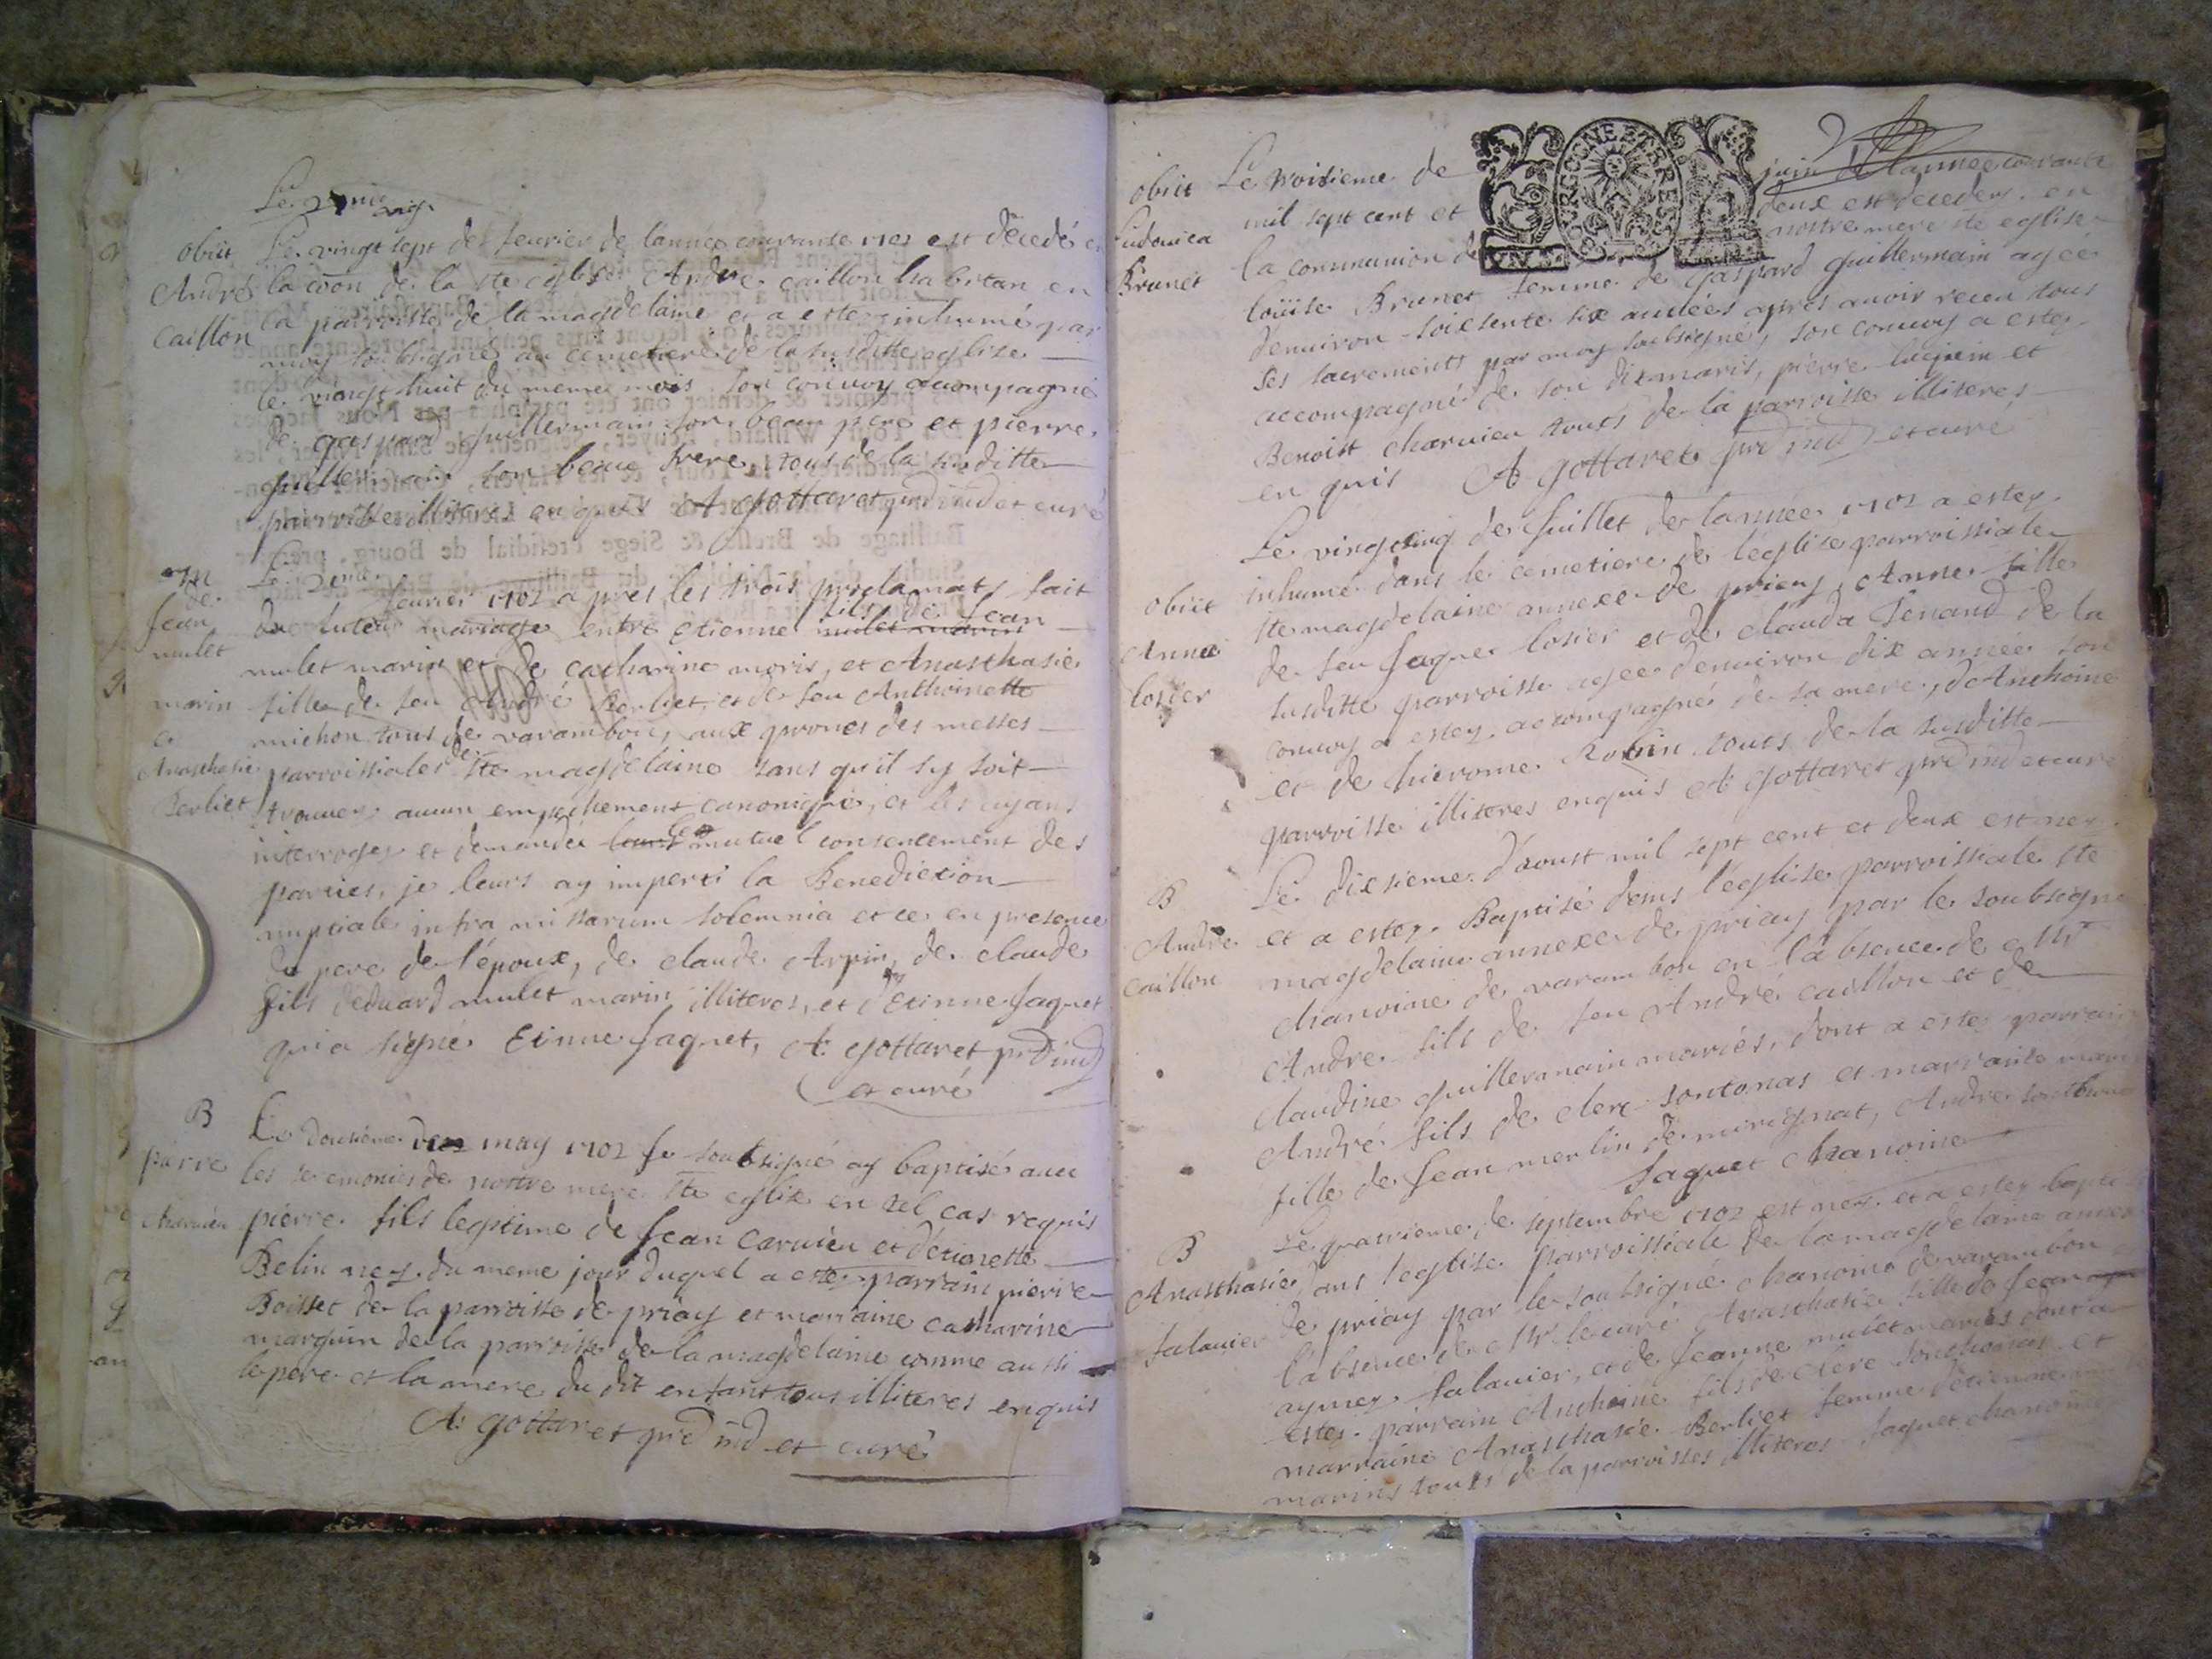 obiit
André
Caillon
Le vingt sept des feurier de l'année courante 1702 est décedé en
la coon de la ste église, Andre caillon habitan en
la parroisse de la magdelaine et a estez inhumé par
moy soubsigné au cemetiere de la susditte eglise
le vingt huit du meme mois son convoy acompagné
de gaspard guillermain son beau pere et pierre
guillermain son beau frere, tous de la susditte
parroisse illiteres enquis A gottaret et curé
M
de
Jean
mulet
marin
et
Anasthasie
Berliet
feurier 1702 apres les trois proclamats fait
du futeur mariage entre etienne fils de Jean
mulet marin et de catharine moris, et Anasthasie
fille de feu André Berliet, et de feu Anthoinette
michon tous de varambon, aux prones des messes
parroissiales de ste magdelaine sans qu'il sy soit
trouuez aucun empechement canonique, et les ayans
interrogez et demandée le mutuel consentement des
parties, je leurs ay imperti la Benediction
nuptiale intra missarum solemnia et ce en presence
du pere de l'époux, de claude Arpin, de claude
fils d'eduard mulet marin illiteres, et d'Etinne Jaquet
qui a signé Etinne Jaquet, A. gottaret
et curé
B
pierre
charuieu
Le dousieme de may 1702 Je soubsigné ay baptisé auec
les ceremonies de nostre mere ste eglise en tel cas requis
pierre fils legitime de Jean Caruieu et d'étionette
Belin nez du meme jour duquel a este parrain pierre
Boisset de la parroisse de priay et marraine catharine
marguin de la parroisse de la magdelaine comme aussi
le pere et la mere du dit enfant tous illiteres enquis
A: gottaret et curé
obiit
Ludouica
Brunet
BOURGONE ET BRESSE
Le troisieme de juin de l'annee courante
mil sept cent et deux est decedez en
la communion de nostre mere ste eglise
loüise Brunet femme de gaspard guillermain agée
denuiron soixsente six années apres auoir receu tous
ses sacrements par moy soubsigné, son conuoy a estez
accompagné de son dit maris, pierre et
Benoist charuieu touts de la parroisse illiteres
en quis A gottaret et curé
obiit
Annee
losier
Le vingt cinq de Juillet de l'année 1702 a estez
inhumé dans le cemetiere de l'eglise parroissiale
ste magdelaine annexe de priay, Anne fille
de feu Jaque losier et de clauda Fenand de la
susditte parroisse agee denuiron dix année son
conuoy a estez accompagné de sa mere, d'Anthoine
et de hierome Robin touts de la susditte
parroisse illiteres enquis A gottaret et curé
B
Andre
caillon
Le dixsieme d'aoust mil sept cent et deux est nez
et a estez Baptisé dans l'église parroissiale ste
magdelaine annexe de priay par le soubsigné
chanoine de varambon en l'absence de Mr
Andre fils de feu André caillon et de
claudine guillermain mariés, dont a este parrain
André fils de clerc sontonas et marraine
fille de Jean merlin de mirignat, Andre
Jaquet chanoine
B
Anasthasie
salauier
Le quatrieme de septembre 1702 est nez et a estez
dans l'eglise parroissiale de la magdelaine
de priay par le soubsigné chanoine de varambon
l'absence de Mr le curé Anasthasie fille de Jean
aymez salauier, et de Jeanne mulet mariés dont a
estez parrain Anthoine fils de clerc sonthonas et
marraine Anasthasée Berliet femme d'etienne
marins touts de la parroisses illiteres Jaquet chanoine